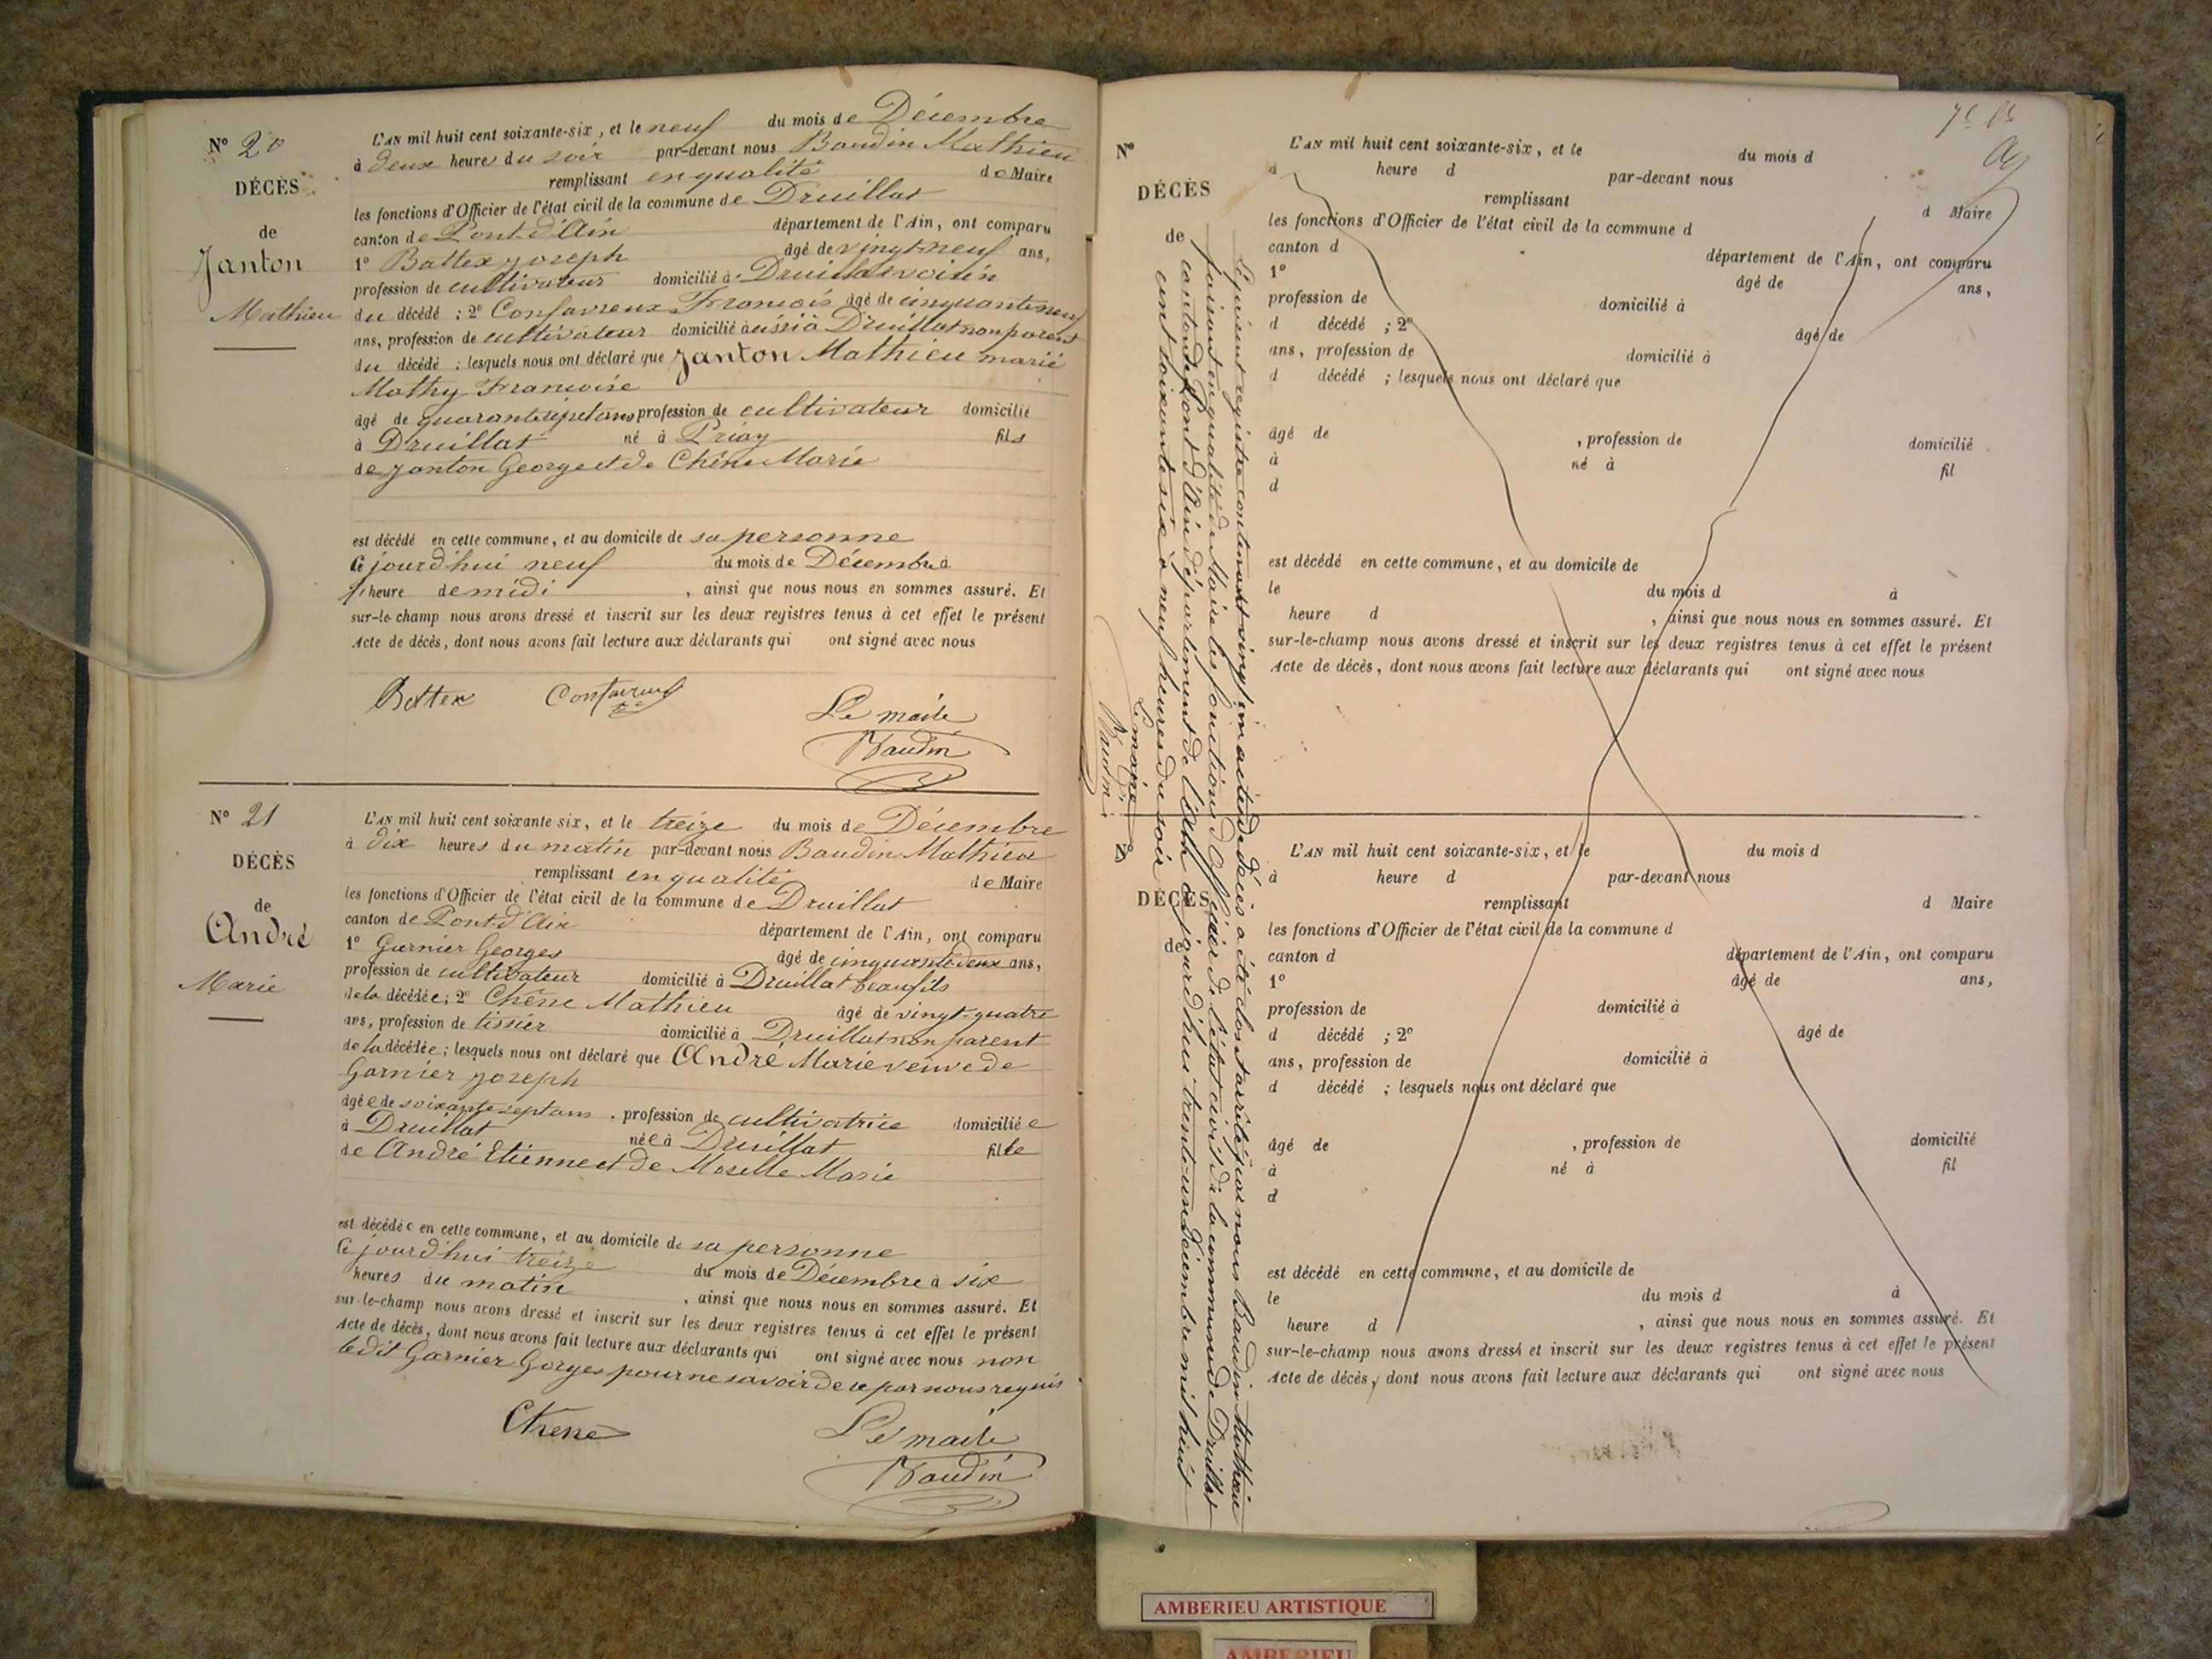 N° 20
DÉCÈS
de
Janton
Mathieu
L'AN mil huit cent soixante-six, et le neuf du mois de Décembre
à deux heures du soir par-devant nous Baudin Mathieu
remplissant en qualité de Maire
les fonctions d'Officier de l'état civil de la commune de Druillat
canton de Pont-d'Ain département de l'Ain, ont comparu
1° Battex joseph âgé de vingt neuf ans,
profession de cultivateur domicilié à Druillat voisin
du décédé ; 2° Confavreux François âgé de cinquante neuf
ans, profession de cultivateur domicilié aussi à Druillat non parent
du décédé ; lesquels nous ont déclaré que Janton Mathieu marié
Mathy Francoise
âgé de quarante sept ans profession de cultivateur domicilié
à Druillat né à Priay fils
de janton George et de Chêne Marie
est décédé en cette commune, et au domicile de sa personne
le jourd'hui neuf du mois de Décembre à
heure de midi , ainsi que nous nous en sommes assuré. Et
sur-le-champ nous avons dressé et inscrit sur les deux registres tenus à cet effet le présent
Acte de décès, dont nous avons fait lecture aux déclarants qui ont signé avec nous
Battex Confavreux
Le maire
Baudin
N° 21
DÉCÈS
de
André
Marie
L'AN mil huit cent soixante six, et le treize du mois de Décembre
à dix heures du matin par-devant nous Baudin Mathieu
remplissant en qualité de Maire
les fonctions d'Officier de l'état civil de la commune de Druillat
canton de Pont-d'Ain département de l'Ain, ont comparu
1° Garnier Georges âgé de cinquante deux ans,
profession de cultivateur domicilié à Druillat beaufils
de la décédée ; 2° Chêne Mathieu âgé de vingt-quatre
ans, profession de tissier domicilié à Druillat non parent
de la décédée ; lesquels nous ont déclaré que André Marie veuve de
Garnier joseph
âgée de soixante sept ans , profession de cultivatrice domiciliée
à Druillat née à Druillat fille
de André Etienne et de Moselle Marie
est décédée en cette commune, et au domicile de sa personne
le jourd'hui treize du mois de Décembre à six
heures du matin , ainsi que nous nous en sommes assuré. Et
sur-le-champ nous avons dressé et inscrit sur les deux registres tenus à cet effet le présent
Acte de décès, dont nous avons fait lecture aux déclarants qui ont signé avec nous non
ledit Garnier Gorges pour ne savoir de ce par nous requis
Chene
Le maire
Baudin
Le présent registre contenant vingt un actes de décès a été clos et arrêté par nous Baudin Mathieu
faisant en qualité de Maire les fonctions d'Officier de l'état civil de la commune de Druillat
canton de Pont d'Ain département de l'Ain aujourd'hui trente-un Décembre mil huit
cent soixante six à neuf heures du soir
Le maire
Baudin
N°
DÉCÈS
de
L'AN mil huit cent soixante-six, et le du mois d
à heure d par-devant nous
remplissant d Maire
les fonctions d'Officier de l'état civil de la commune d
canton d département de l'Ain, ont comparu
1° âgé de ans,
profession de domicilié à
d décédé ; 2° âgé de
ans, profession de domicilié à
d décédé ; lesquels nous ont déclaré que
âgé de , profession de domicilié
à né à fil
d
est décédé en cette commune, et au domicile de
le du mois d à
heure d , ainsi que nous nous en sommes assuré. Et
sur-le-champ nous avons dressé et inscrit sur les deux registres tenus à cet effet le présent
Acte de décès, dont nous avons fait lecture aux déclarants qui ont signé avec nous
DÉCÈS
de
L'AN mil huit cent soixante-six, et le du mois d
à heure d par-devant nous
remplissant d Maire
les fonctions d'Officier de l'état civil de la commune d
canton d département de l'Ain, ont comparu
1° âgé de ans,
profession de domicilié à
d décédé ; 2° âgé de
ans, profession de domicilié à
d décédé ; lesquels nous ont déclaré que
âgé de , profession de domicilié
à né à fil
d
est décédé en cette commune, et au domicile de
le du mois d à
heure d , ainsi que nous nous en sommes assuré. Et
sur-le-champ nous avons dressé et inscrit sur les deux registres tenus à cet effet le présent
Acte de décès, dont nous avons fait lecture aux déclarants qui ont signé avec nous
AMBERIEU ARTISTIQUE
AMBERIEU